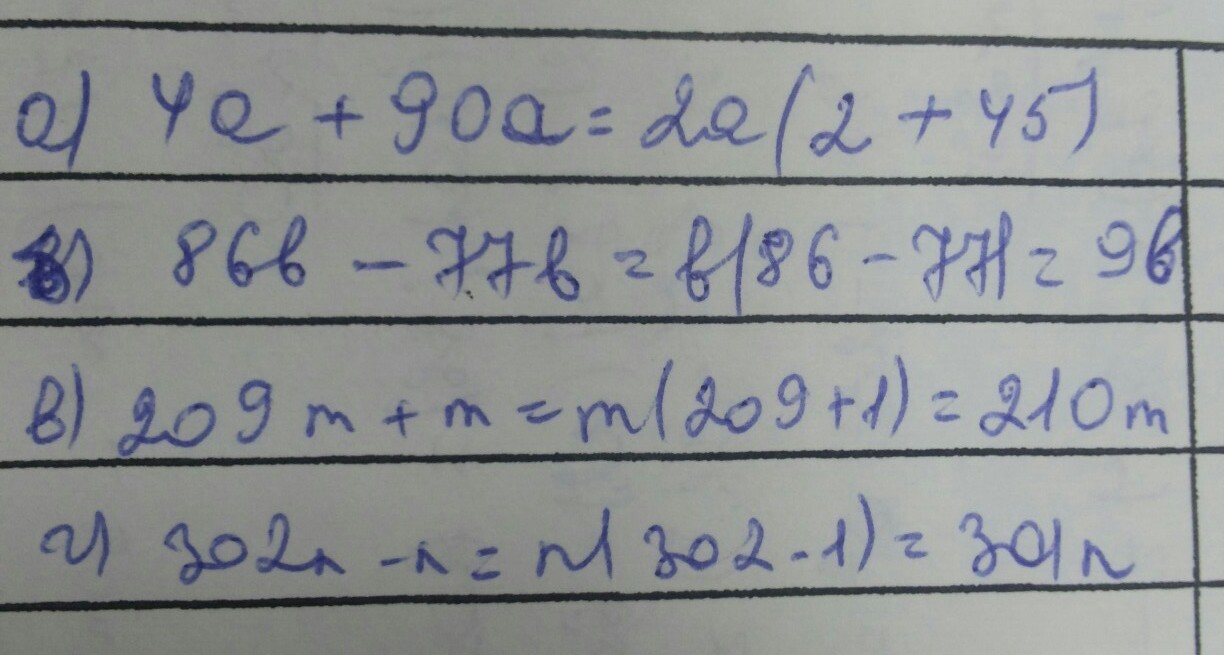 а) 4a + 90a = 2a(2 + 45)
б) 86b - 77b = b(86 - 77) = 9b
в) 209m + m = m(209+1) = 210m
г) 302n - n = n(302-1) = 301n